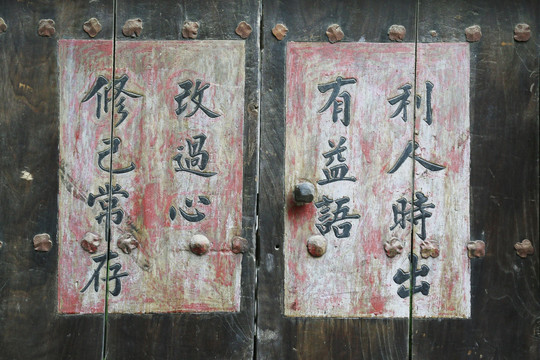 利人時出
有益語
改過心
修己常存